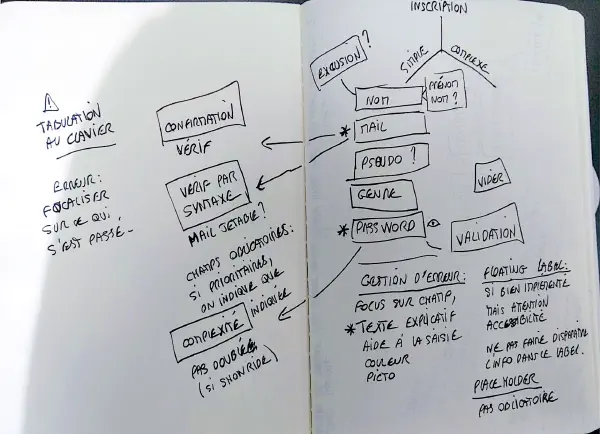 ⚠ TABULATION
AU CLAVIER
ERREUR:
FOCALISER
SUR CE QUI
S'EST PASSÉ.
CONFIRMATION
VÉRIF
VÉRIF PAR
SYNTAXE
MAIL JETABLE?
CHAMPS OBLIGATOIRES:
SI PRIORITAIRES,
ON INDIQUE QUE
COMPLEXITÉ INDIQUÉE
PAS DOUBLÉE
(SI SHOW/HIDE)
INSCRIPTION
SIMPLE
COMPLEXE
EXCUSION?
NOM
PRÉNOM
NOM?
* MAIL
PSEUDO ?
GENRE
* PASSWORD
VIDER
VALIDATION
GESTION D'ERREUR:
FOCUS SUR CHAMP,
* TEXTE EXPLICATIF
AIDE À LA SAISIE
COULEUR
PICTO
FLOATING LABEL:
SI BIEN IMPLEMENTÉ
MAIS ATTENTION
ACCESSIBILITÉ
NE PAS FAIRE DISPARAITRE
L'INFO DANS LE LABEL.
PLACEHOLDER
PAS OBLIGATOIRE